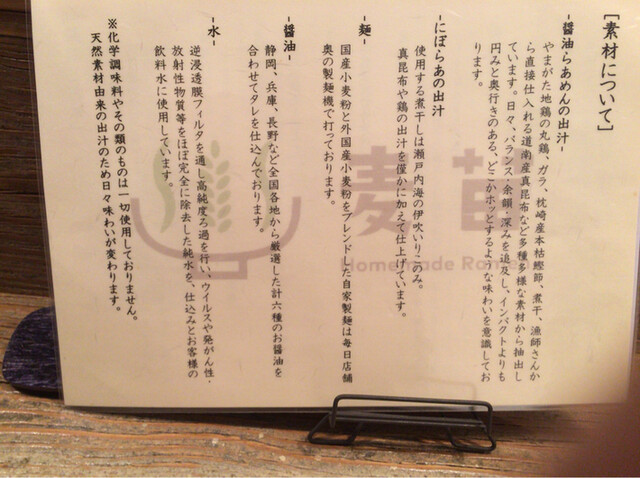 ［素材について］
-醤油らあめんの出汁-
やまがた地鶏の丸鶏、ガラ、枕崎産本枯鰹節、煮干、漁師さんか
ら直接仕入れる道南産真昆布など多種多様な素材から抽出し
ています。日々、バランス・余韻・深みを追及し、インパクトよりも
円みと奥行きのある、どこかホッとするような味わいを意識してお
ります。
-にぼらあの出汁-
使用する煮干しは瀬戸内海の伊吹いりこのみ。
真昆布や鶏の出汁を僅かに加えて仕上げています。
-麺-
国産小麦粉と外国産小麦粉をブレンドした自家製麺は毎日店舗
奥の製麺機で打っております。
-醤油-
静岡、兵庫、長野など全国各地から厳選した計六種のお醤油を
合わせてタレを仕込んでおります。
-水-
逆浸透膜フィルタを通し高純度ろ過を行い、ウイルスや発がん性・
放射性物質等をほぼ完全に除去した純水を、仕込みとお客様の
飲料水に使用しています。
※化学調味料やその類のものは一切使用しておりません。
天然素材由来の出汁のため日々味わいが変わります。
麦苗
Homemade Ram